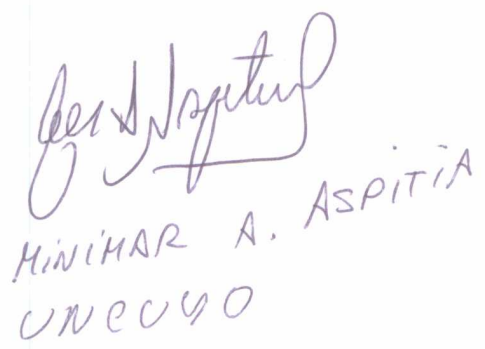 MINIMAR A. ASPITIA
UNCUYO